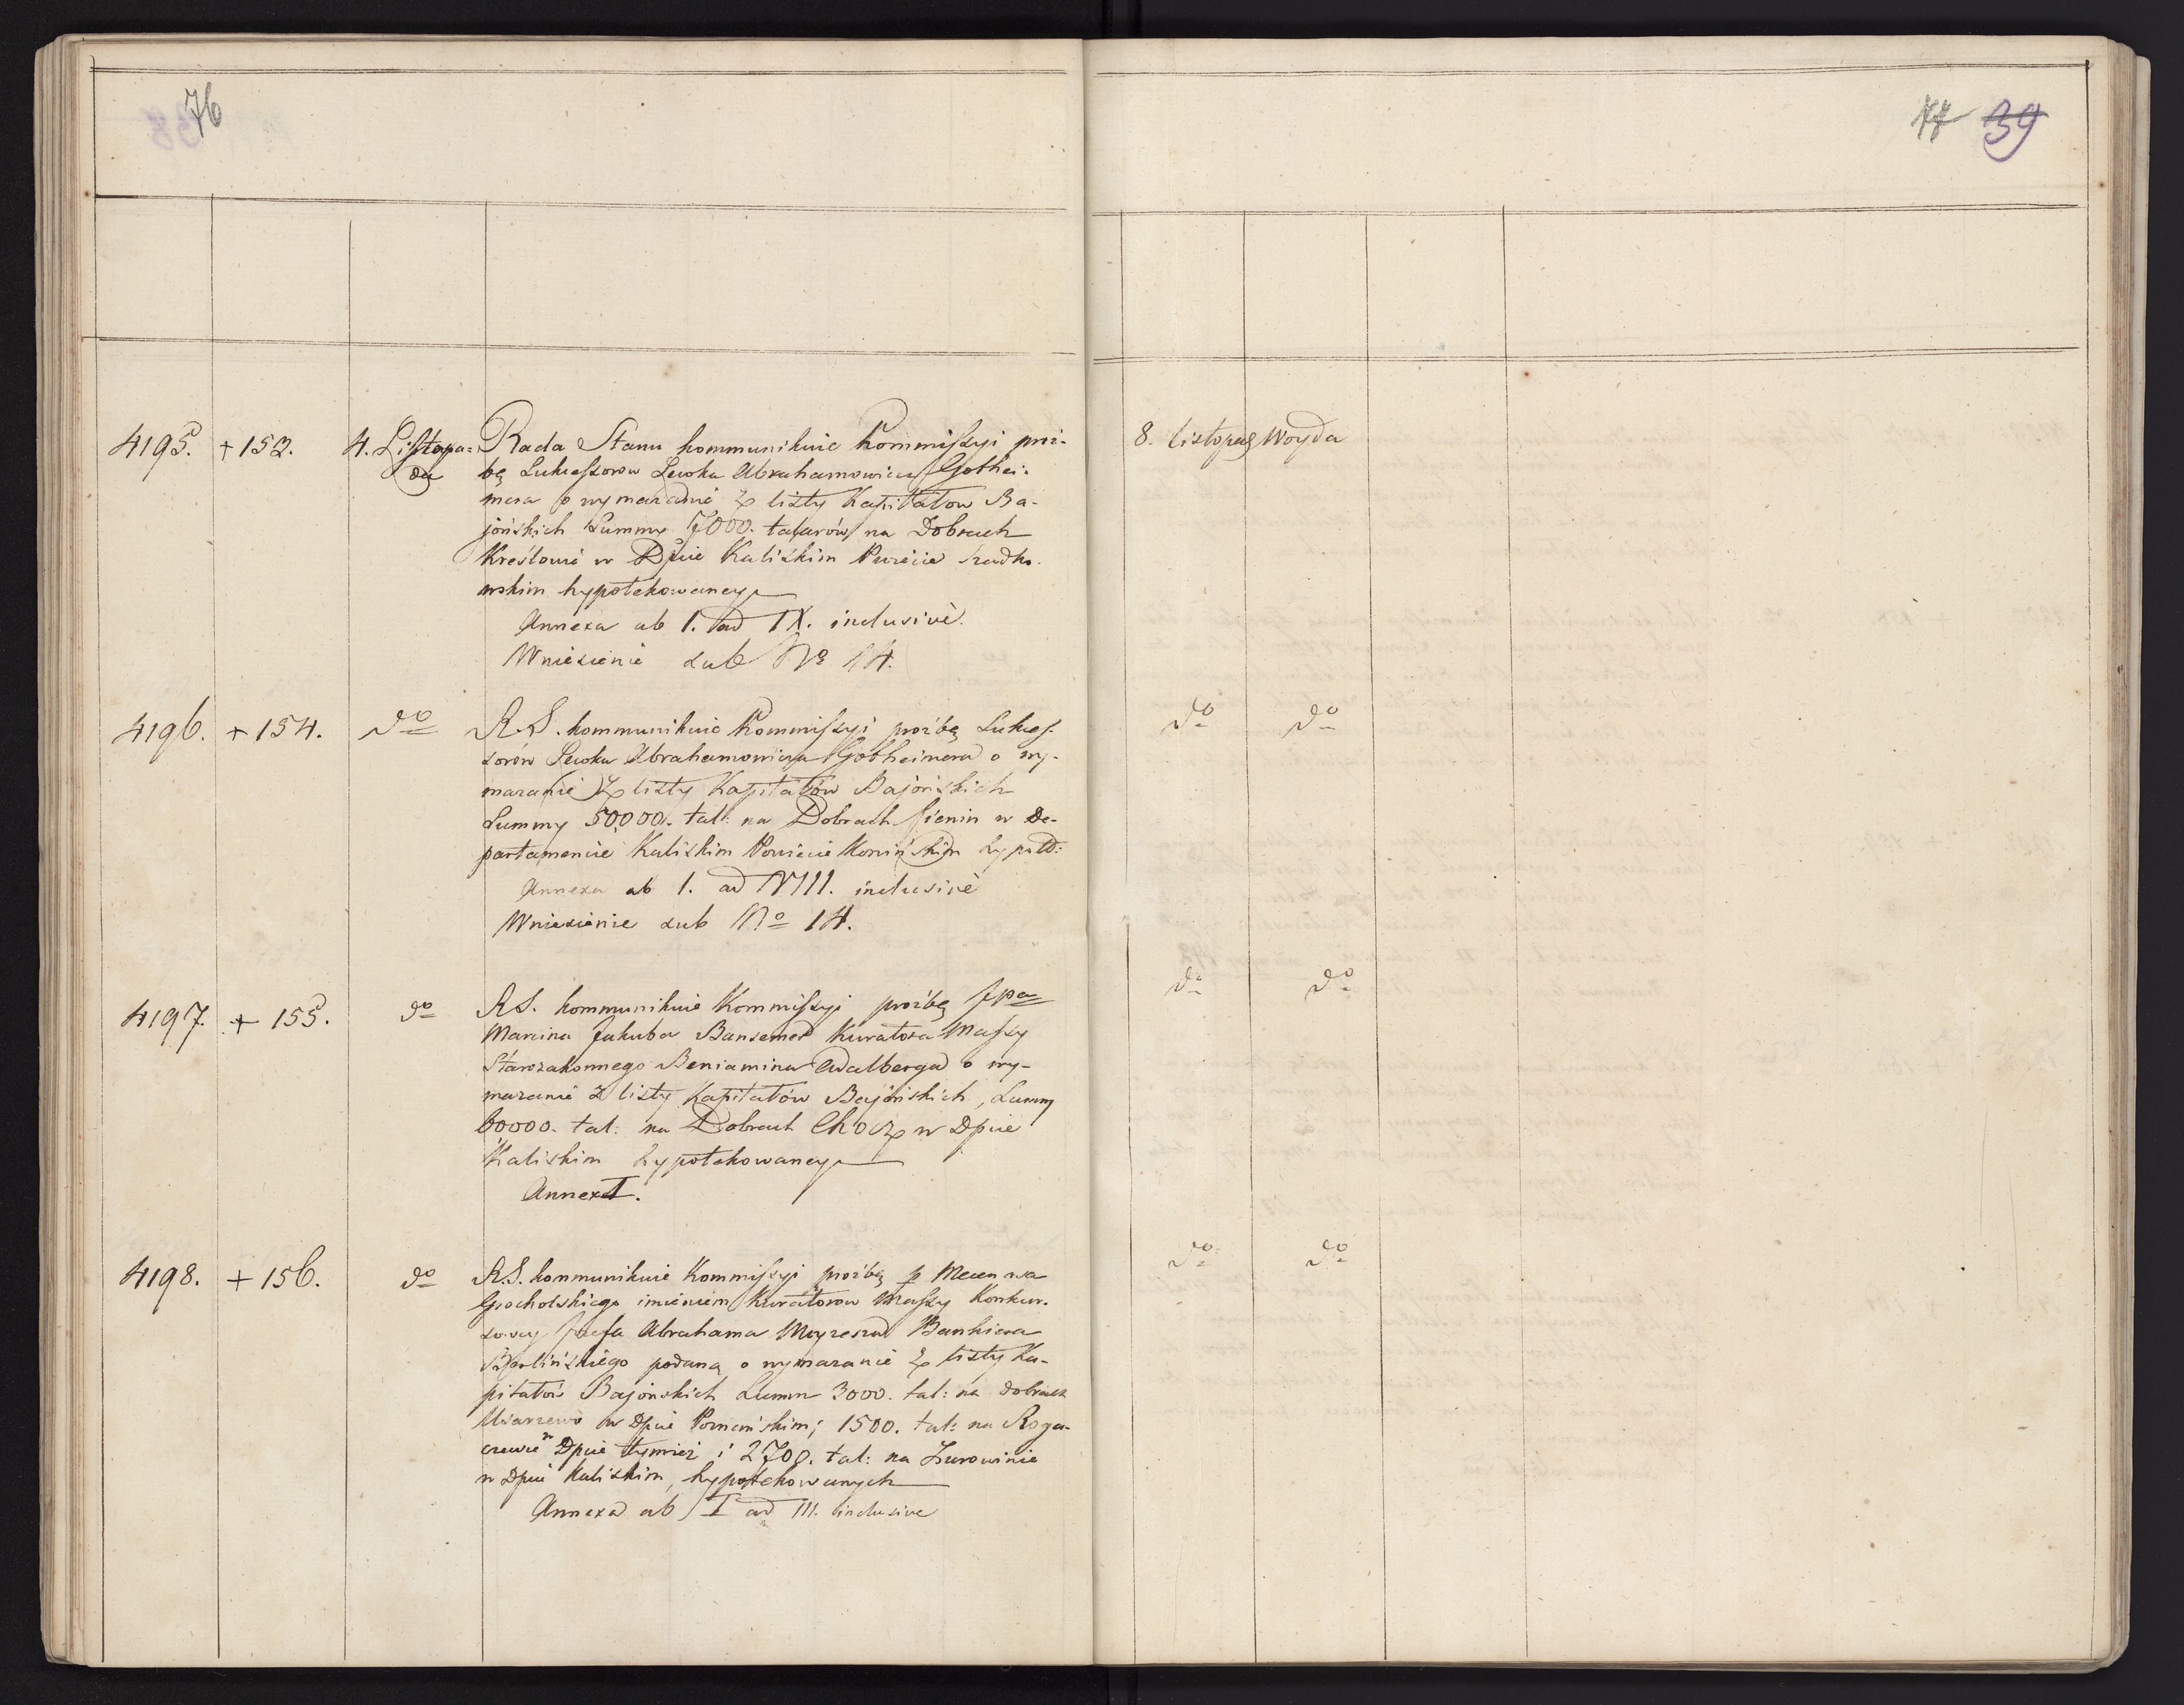 76
4195. + 153. 4. Listopa=
da
Rada Stanu kommunikuie Kommissyi proź-
bę Sukcessorow Lewka Abrahamowicza Gotthei-
mera o wymazanie z listy Kapitałow Ba-
jońskich Summy 7000. talarów na Dobrach
w Dpcie Kaliskim Powiecie
wskim hypotekowaney
Annexa ab I. ad IX. inclusivè.
Wniesienie sub No 14.
4196. + 154. do
R.S. kommunikuie Kommissyi proźbę Sukces-
sorów Lewka Abrahamowicza Gottheimera o wy-
mazanie z listy Kapitałów Bajońskich
Summy 50,000. tal: na Dobrach Sienin w De-
partamencie Kaliskim Powiecie Konińskim hypotd:
Annexa ab I. ad VIII. inclusivè
Wniesienie sub No 14.
4197. + 155. do
R.S. kommunikuie Kommissyi proźbę Jpa
Marcina Jakuba Bansemer Kuratora Massy
Starozakonnego Beniamina Walberga o wy-
mazanie z listy Kapitałów Bajońskich, Summy
60000. tal: na Dobrach Chocz w Dpcie
Kaliskim hypotekowaney
Annex I.
4198. + 156. do
R.S. kommunikuie Kommissyi proźbę p Mecenasa
Grocholskiego imieniem Kuratorow Massy Konkur-
sowey Josefa Abrahama Moyzesza Bankiera
Berlińskiego podaną o wymazanie z listy Ka-
pitałów Bajońskich Summ 3000. tal: na dobrach
Uzarzewo w Dpcie Poznańskim; 1500. tal: na Roga-
czewie w Dpcie tymże i 2700. tal: na Zurowinie
w Dpcie Kaliskim, hypotekowanych
Annexa ab I ad III. inclusive
77 39
8. listopad Woyda
do do
do do
do do